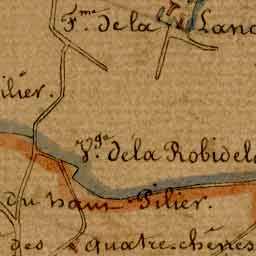 F.me de la Land
ilier.
V.ge de la Robidel
du haut Pilier.
des quatre chênes